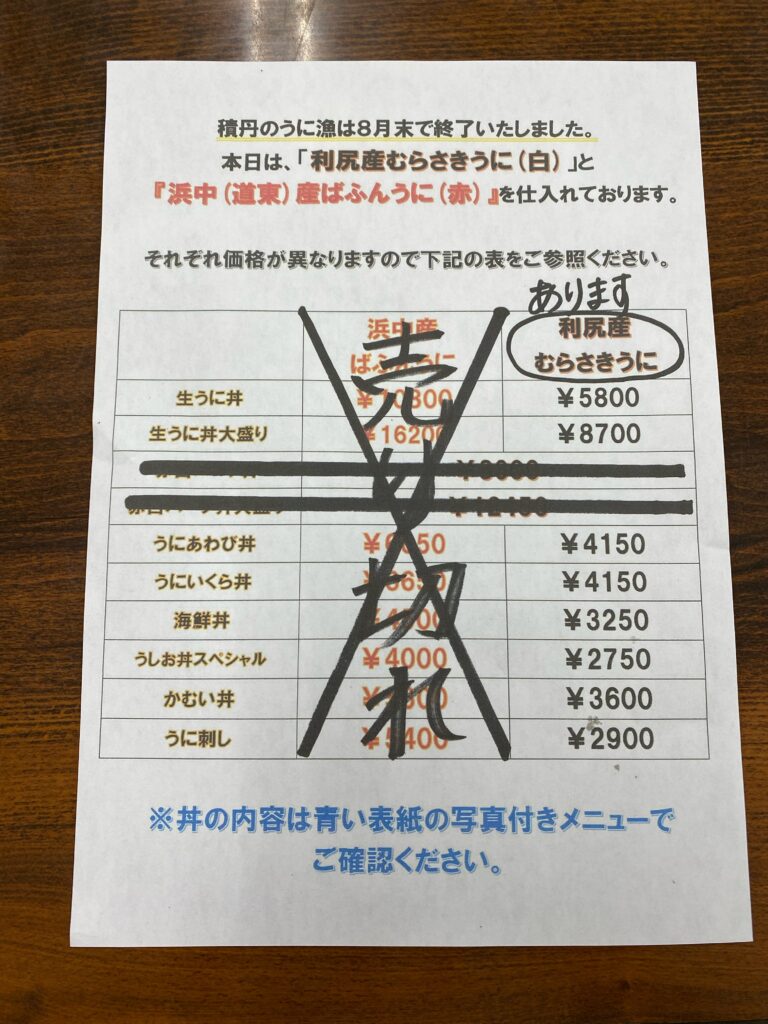 積丹のうに漁は8月末で終了いたしました。
本日は、「利尻産むらさきうに（白）」と
『浜中（道東）産ばふんうに（赤）』を仕入れております。
それぞれ価格が異なりますので下記の表をご参照ください。
あります
浜中産 利尻産
ばふんうに むらさきうに
売り切れ
生うに丼 ¥10800 ¥5800
生うに丼大盛り ¥16200 ¥8700
うにあわび丼 ¥6050 ¥4150
うにいくら丼 ¥4150
海鮮丼 ¥3250
うしお丼スペシャル ¥4000 ¥2750
かむい丼 ¥3600
うに刺し ¥5400 ¥2900
※丼の内容は青い表紙の写真付きメニューで
ご確認ください。